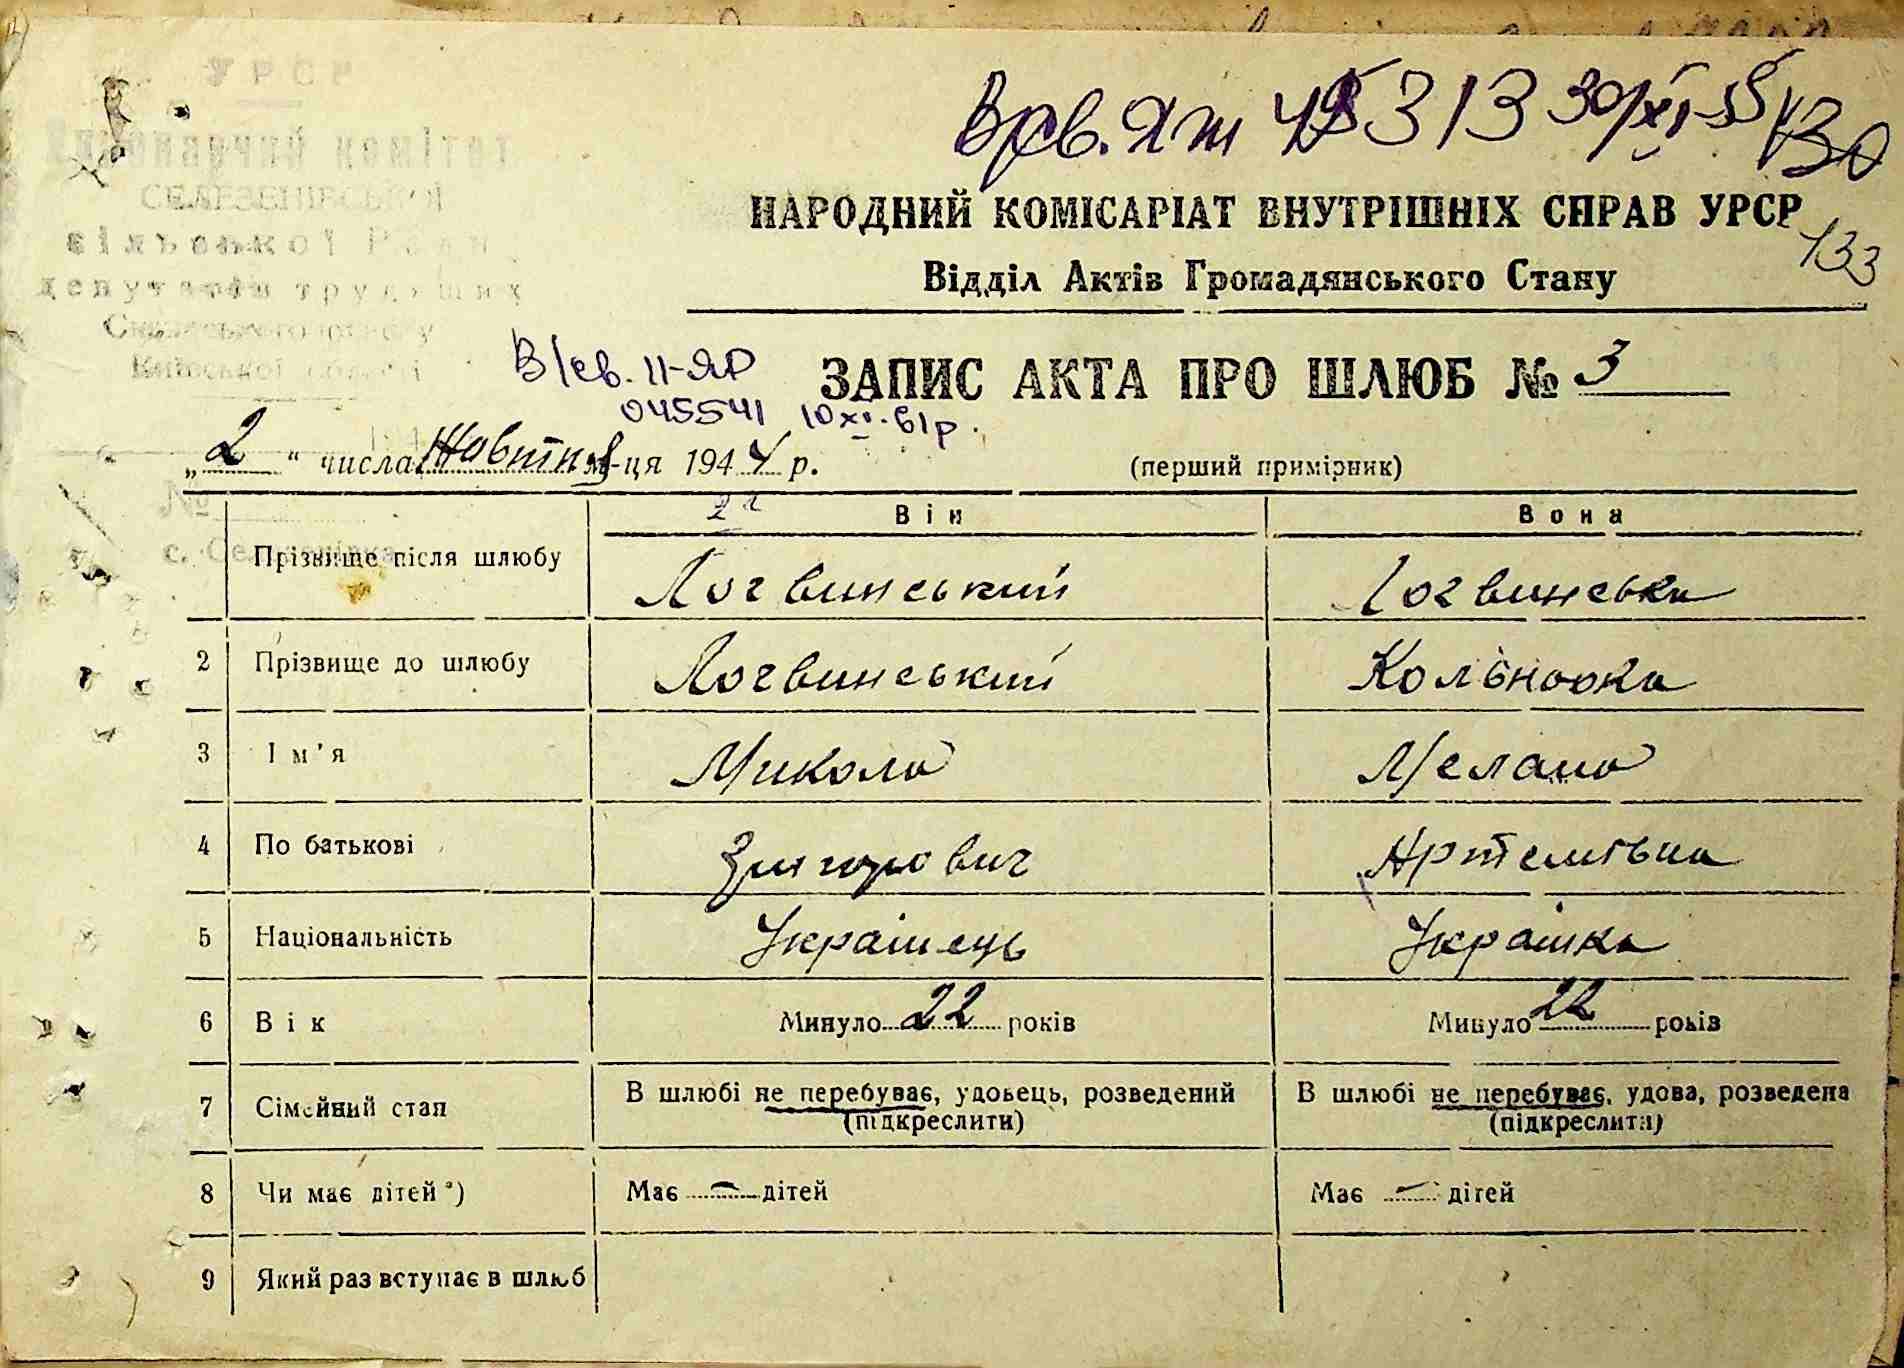 УРСР
Виконавчий комітет
СЕЛЕЗЕНІВСЬКОЇ
сільської Ради
депутатів трудящих
Київської області
№
с.
В/св. ЯШ 313 30/XI-55 130
НАРОДНИЙ КОМІСАРІАТ ВНУТРІШНІХ СПРАВ УРСР
133
Відділ Актів Громадянського Стану
В/св. II-ЯР
045541 10 XI. 61р.
ЗАПИС АКТА ПРО ШЛЮБ № 3
„2“ числа Жовтня м-ця 1944 р. (перший примірник)
22 Він Вона
Прізвище після шлюбу Логвинський Логвинська
2 Прізвище до шлюбу Логвинський
3 Ім'я Микола
4 По батькові Григорович Артемівна
5 Національність Українець Українка
6 Вік Минуло 22 років Минуло 22 років
7 Сімейний стан В шлюбі не перебуває, удовець, розведений В шлюбі не перебуває, удова, розведена
(підкреслити) (підкреслити)
8 Чи має дітей*) Має — дітей Має — дітей
9 Який раз вступає в шлюб